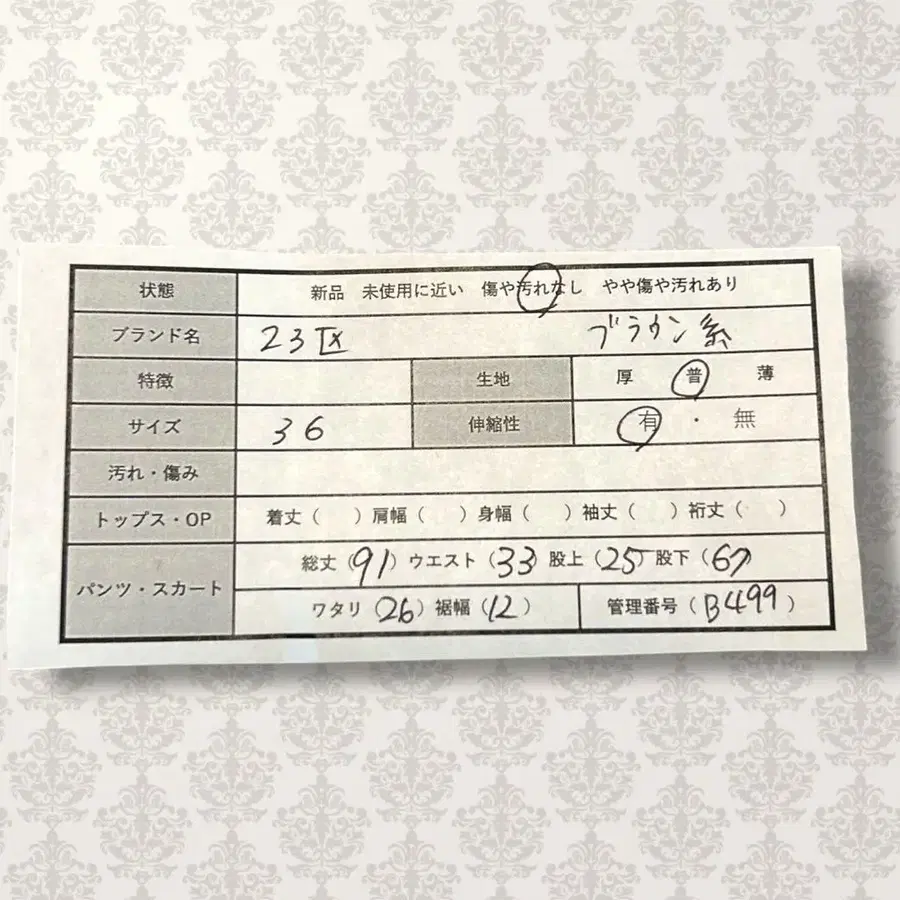 状態 新品 未使用に近い 傷や汚れなし やや傷や汚れあり
ブランド名 23区 ブラウン系
特徴 生地 厚 普 薄
サイズ 36 伸縮性 有 ・ 無
汚れ・傷み
トップス・OP 着丈( )肩幅( )身幅( )袖丈( )裄丈( )
パンツ・スカート 総丈(91)ウエスト(33 股上(25)股下(67)
ワタリ(26)裾幅(12) 管理番号(B499)